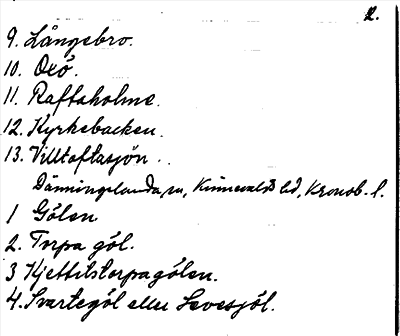 2.
9. Långebro.
10. Oxö.
11. Raftaholme.
12. Kyrkebacken.
13. Villtoftasjön.
Dänningelanda sn, Kinnevalds hd, Kronob. l.
1 Gölen
2. Torpa göl.
3 Kjettilstorpagölen.
4. Svartegöl eller Sevesjöl.